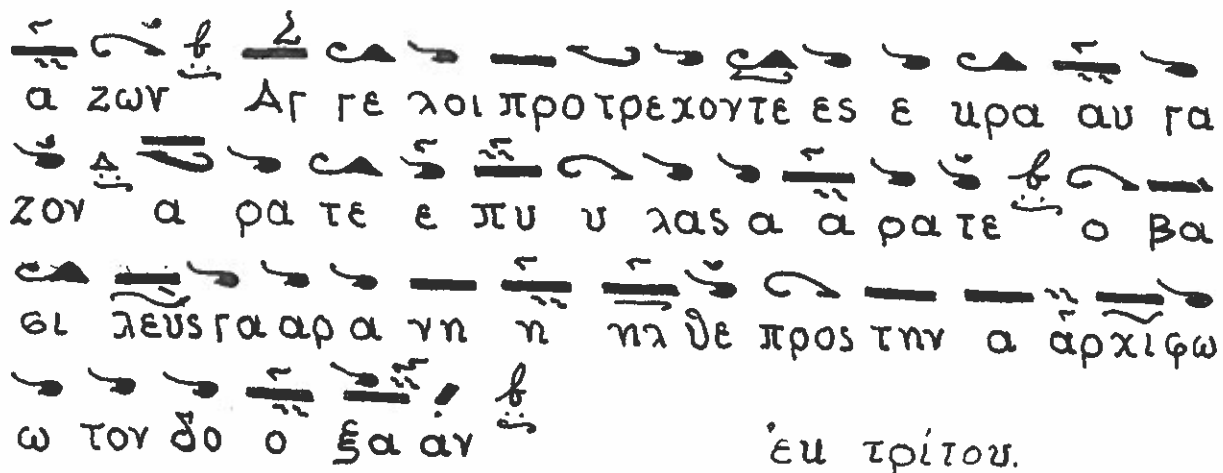 α ζων Αγ γε λοι προ τρεχοντε ες ε κρα αυ γα
ζον α ρα τε ε πυ υ λας α α ρα τε ο βα
σι λευς γα αρ α νη η ηλ θε προς την α αρχι φω
ω τον δο ο ξα αν
ἐκ τρίτου.